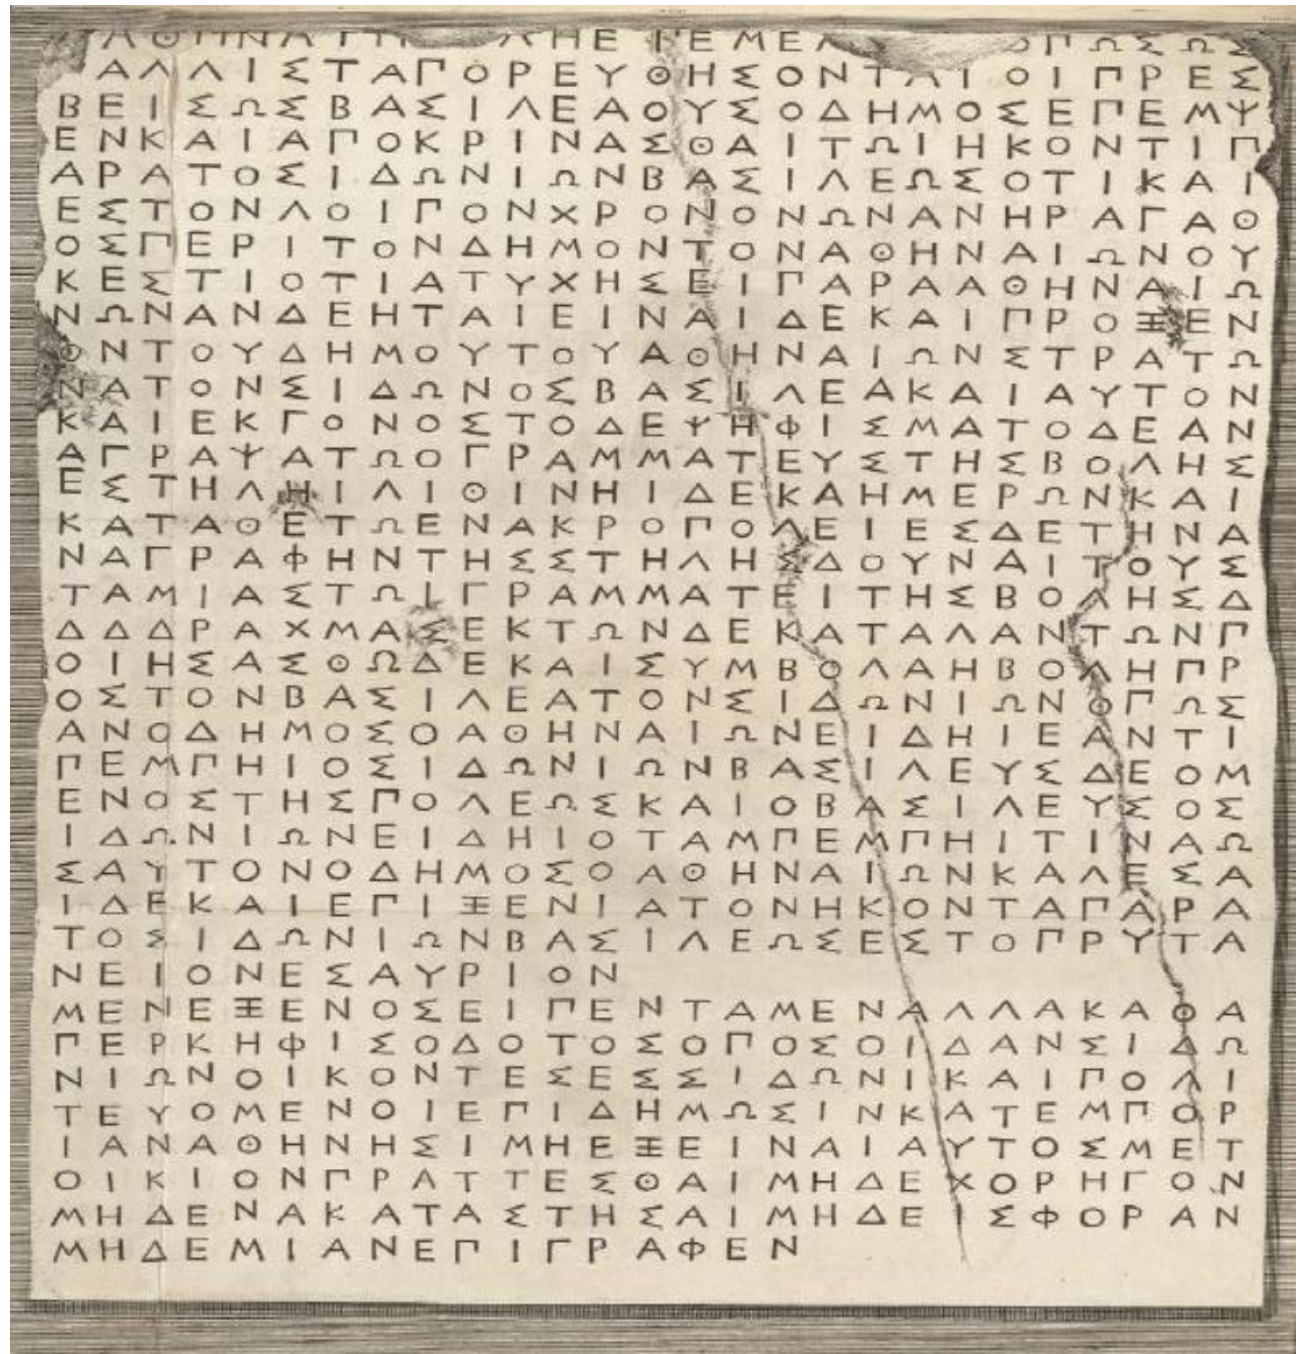 ΑΘΗΝΑ ΛΗΕ ΕΜΕΛ ΟΠΩΣΩΣ
ΑΛΛΙΣΤΑΠΟΡΕΥΘΗΣΟΝΤΑΙΟΙΠΡΕΣ
ΒΕΙΣΩΣΒΑΣΙΛΕΑΟΥΣΟΔΗΜΟΣΕΠΕΜΨ
ΕΝΚΑΙΑΠΟΚΡΙΝΑΣΘΑΙΤΩΙΗΚΟΝΤΙΠ
ΑΡΑΤΟΣΙΔΩΝΙΩΝΒΑΣΙΛΕΩΣΟΤΙΚΑΙ
ΕΣΤΟΝΛΟΙΠΟΝΧΡΟΝΟΝΩΝΑΝΗΡΑΓΑΘ
ΟΣΠΕΡΙΤΟΝΔΗΜΟΝΤΟΝΑΘΗΝΑΙΩΝΟΥ
ΚΕΣΤΙΟΤΙΑΤΥΧΗΣΕΙΠΑΡΑΑΘΗΝΑΙΩ
ΝΩΝΑΝΔΕΗΤΑΙΕΙΝΑΙΔΕΚΑΙΠΡΟΞΕΝ
ΟΝΤΟΥΔΗΜΟΥΤΟΥΑΘΗΝΑΙΩΝΣΤΡΑΤΩ
ΝΑΤΟΝΣΙΔΩΝΟΣΒΑΣΙΛΕΑΚΑΙΑΥΤΟΝ
ΚΑΙΕΚΓΟΝΟΣΤΟΔΕΨΗΦΙΣΜΑΤΟΔΕΑΝ
ΑΓΡΑΨΑΤΩΟΓΡΑΜΜΑΤΕΥΣΤΗΣΒΟΛΗΣ
ΕΣΤΗΛΗΙΛΙΘΙΝΗΙΔΕΚΑΗΜΕΡΩΝΚΑΙ
ΚΑΤΑΘΕΤΩΕΝΑΚΡΟΠΟΛΕΙΕΣΔΕΤΗΝΑ
ΝΑΓΡΑΦΗΝΤΗΣΣΤΗΛΗΣΔΟΥΝΑΙΤΟΥΣ
ΤΑΜΙΑΣΤΩΙΓΡΑΜΜΑΤΕΙΤΗΣΒΟΛΗΣΔ
ΔΔΔΡΑΧΜΑΣΕΚΤΩΝΔΕΚΑΤΑΛΑΝΤΩΝΠ
ΟΙΗΣΑΣΘΩΔΕΚΑΙΣΥΜΒΟΛΑΗΒΟΛΗΠΡ
ΟΣΤΟΝΒΑΣΙΛΕΑΤΟΝΣΙΔΩΝΙΩΝΟΠΩΣ
ΑΝΟΔΗΜΟΣΟΑΘΗΝΑΙΩΝΕΙΔΗΙΕΑΝΤΙ
ΠΕΜΠΗΙΟΣΙΔΩΝΙΩΝΒΑΣΙΛΕΥΣΔΕΟΜ
ΕΝΟΣΤΗΣΠΟΛΕΩΣΚΑΙΟΒΑΣΙΛΕΥΣΟΣ
ΙΔΩΝΙΩΝΕΙΔΗΙΟΤΑΜΠΕΜΠΗΙΤΙΝΑΩ
ΣΑΥΤΟΝΟΔΗΜΟΣΟΑΘΗΝΑΙΩΝΚΑΛΕΣΑ
ΙΔΕΚΑΙΕΠΙΞΕΝΙΑΤΟΝΗΚΟΝΤΑΠΑΡΑ
ΤΟΣΙΔΩΝΙΩΝΒΑΣΙΛΕΩΣΕΣΤΟΠΡΥΤΑ
ΝΕΙΟΝΕΣΑΥΡΙΟΝ
ΜΕΝΕΞΕΝΟΣΕΙΠΕΝΤΑΜΕΝΑΛΛΑΚΑΘΑ
ΠΕΡΚΗΦΙΣΟΔΟΤΟΣΟΠΟΣΟΙΔΑΝΣΙΔΩ
ΝΙΩΝΟΙΚΟΝΤΕΣΕΣΣΙΔΩΝΙΚΑΙΠΟΛΙ
ΤΕΥΟΜΕΝΟΙΕΠΙΔΗΜΩΣΙΝΚΑΤΕΜΠΟΡ
ΙΑΝΑΘΗΝΗΣΙΜΗΕΞΕΙΝΑΙΑΥΤΟΣΜΕΤ
ΟΙΚΙΟΝΠΡΑΤΤΕΣΘΑΙΜΗΔΕΧΟΡΗΓΟΝ
ΜΗΔΕΝΑΚΑΤΑΣΤΗΣΑΙΜΗΔΕΙΣΦΟΡΑΝ
ΜΗΔΕΜΙΑΝΕΠΙΓΡΑΦΕΝ